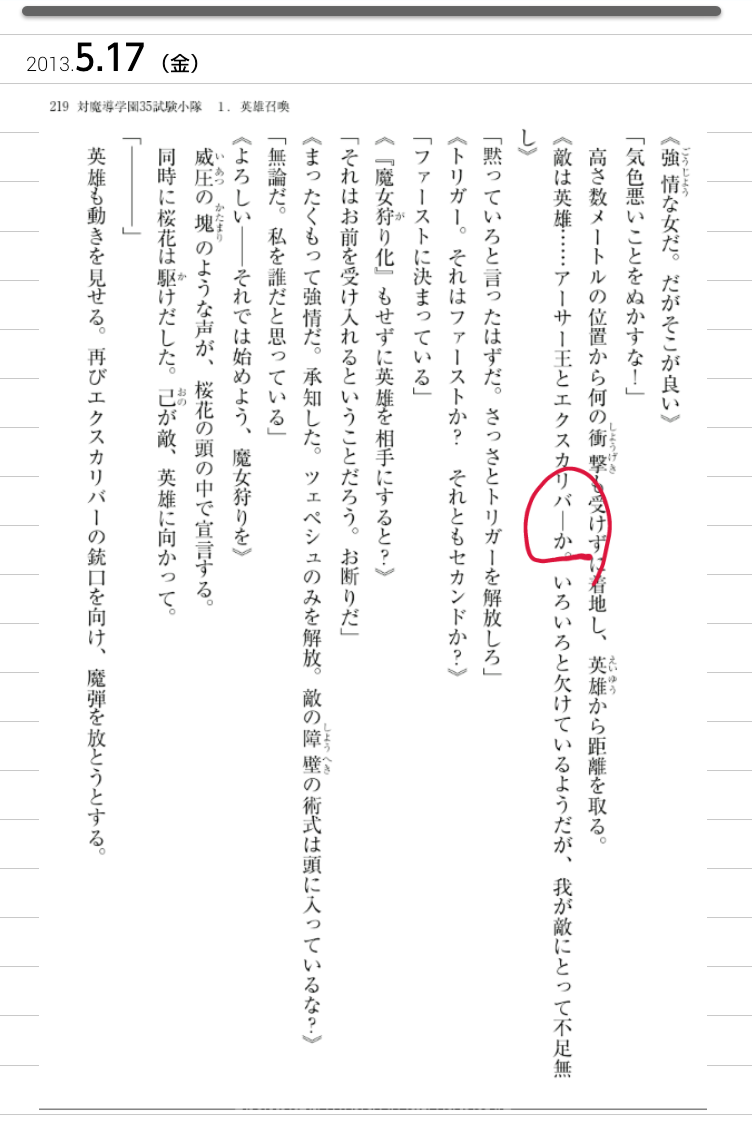 2013.5.17（金）
219 対魔導学園35試験小隊　1．英雄召喚
《強情な女だ。だがそこが良い》
「気色悪いことをぬかすな！」
高さ数メートルの位置から何の衝撃も受けずに着地し、英雄から距離を取る。
《敵は英雄……アーサー王とエクスカリバーか。いろいろと欠けているようだが、我が敵にとって不足無
し》
「黙っていろと言ったはずだ。さっさとトリガーを解放しろ」
《トリガー。それはファーストか？　それともセカンドか？》
「ファーストに決まっている」
《『魔女狩り化』もせずに英雄を相手にすると？》
「それはお前を受け入れるということだろう。お断りだ」
《まったくもって強情だ。承知した。ツェペシュのみを解放。敵の障壁の術式は頭に入っているな？》
「無論だ。私を誰だと思っている」
《よろしい――それでは始めよう、魔女狩りを》
威圧の塊のような声が、桜花の頭の中で宣言する。
同時に桜花は駆けだした。己が敵、英雄に向かって。
「――――」
英雄も動きを見せる。再びエクスカリバーの銃口を向け、魔弾を放とうとする。